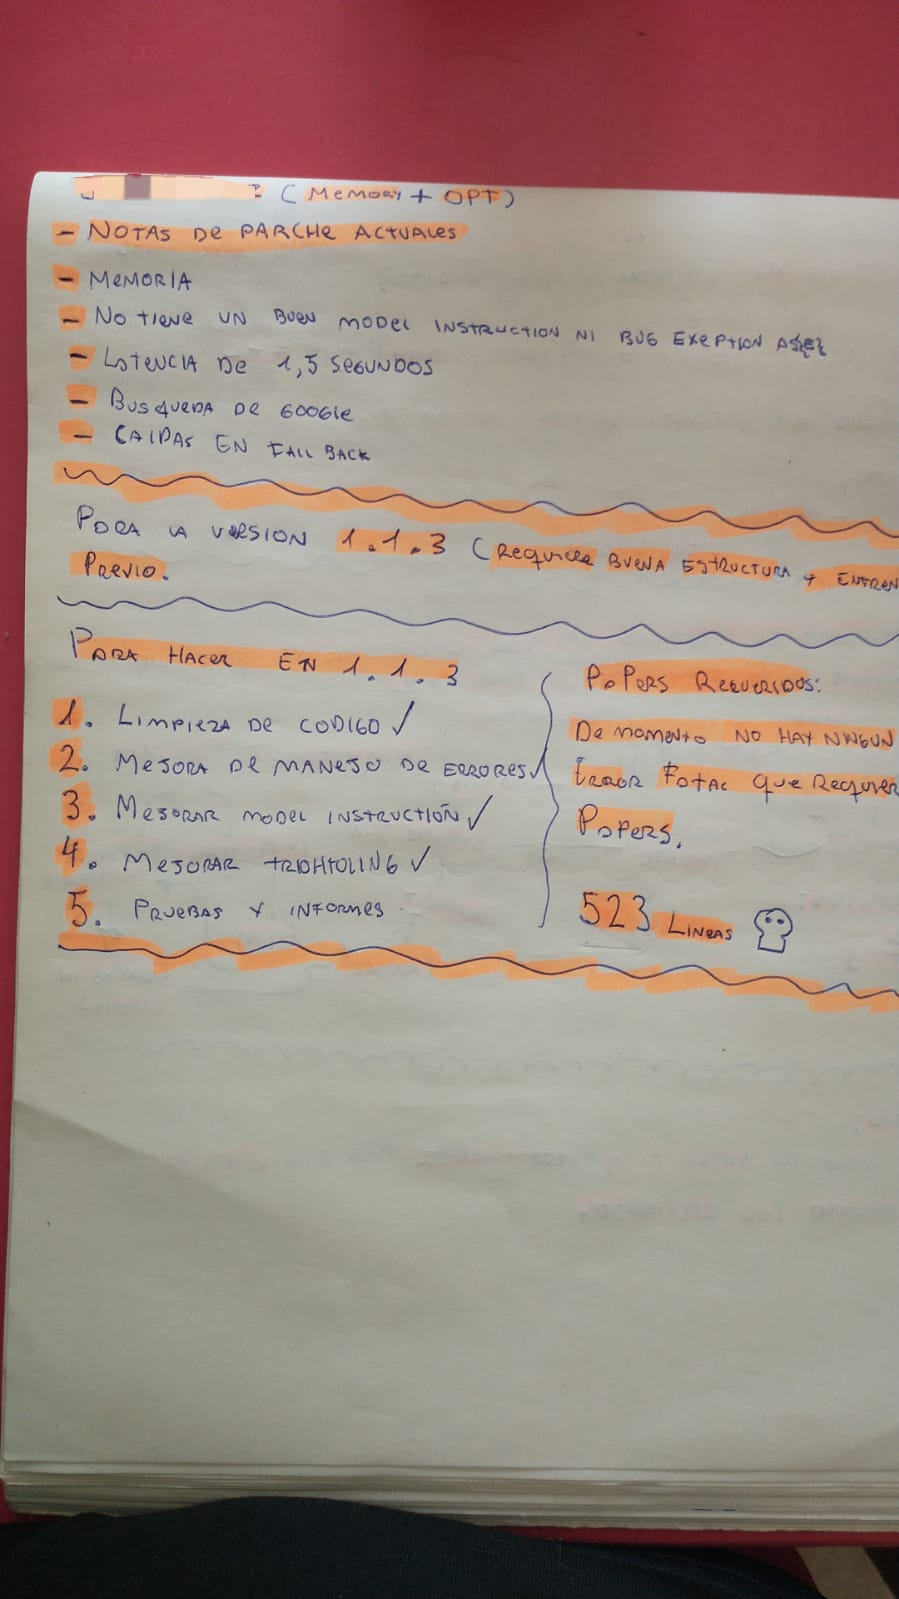 (MEMORY + OPT)
- NOTAS DE PARCHE ACTUALES
- MEMORIA
- NO TIENE UN BUEN MODEL INSTRUCTION NI BUG EXEPTION
- LATENCIA DE 1,5 SEGUNDOS
- BUSQUEDA DE GOOGLE
- CAIDAS EN FALL BACK
PARA LA VERSION 1.1.3 (REQUIERE BUENA ESTRUCTURA Y ENTREN
PREVIO.
PARA HACER EN 1.1.3
1. LIMPIEZA DE CODIGO ✓
2. MEJORA DE MANEJO DE ERRORES ✓
3. MEJORAR MODEL INSTRUCTION ✓
4. MEJORAR ✓
5. PRUEBAS Y INFORMES
PAPERS REQUERIDOS:
DE MOMENTO NO HAY NINGUN
ERROR FOTAL QUE REQUIER
PAPERS.
523 LINEAS